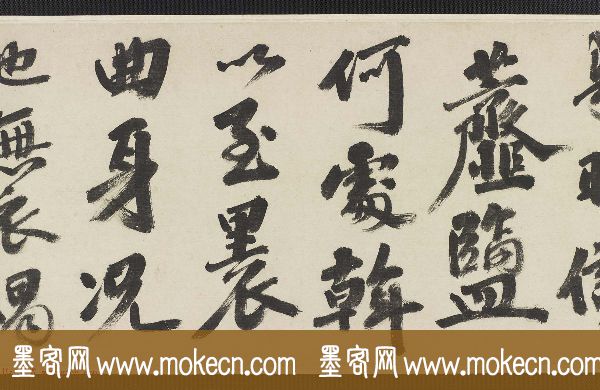 虀鹽
何處幹
以至裹
曲身況
也無衣
墨客网 www.mokecn.com 墨客网 www.mokecn.com